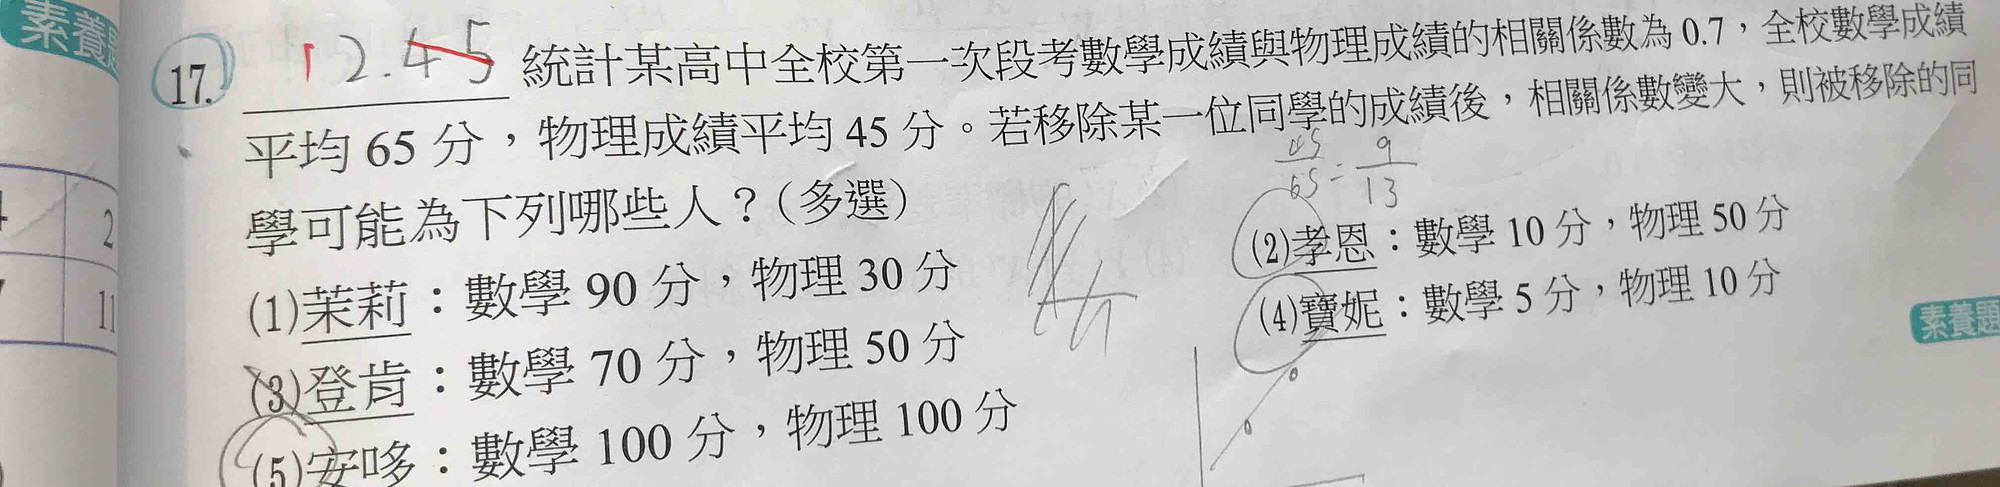 素養題
2
11
17. 12.45 統計某高中全校第一次段考數學成績與物理成績的相關係數為 0.7，全校數學成績
平均 65 分，物理成績平均 45 分。若移除某一位同學的成績後，相關係數變大，則被移除的同
學可能為下列哪些人？（多選）
45/65 = 9/13
(1)茉莉：數學 90 分，物理 30 分
(2)孝恩：數學 10 分，物理 50 分
(3)登肯：數學 70 分，物理 50 分
(4)寶妮：數學 5 分，物理 10 分
(5)安哆：數學 100 分，物理 100 分
素養題